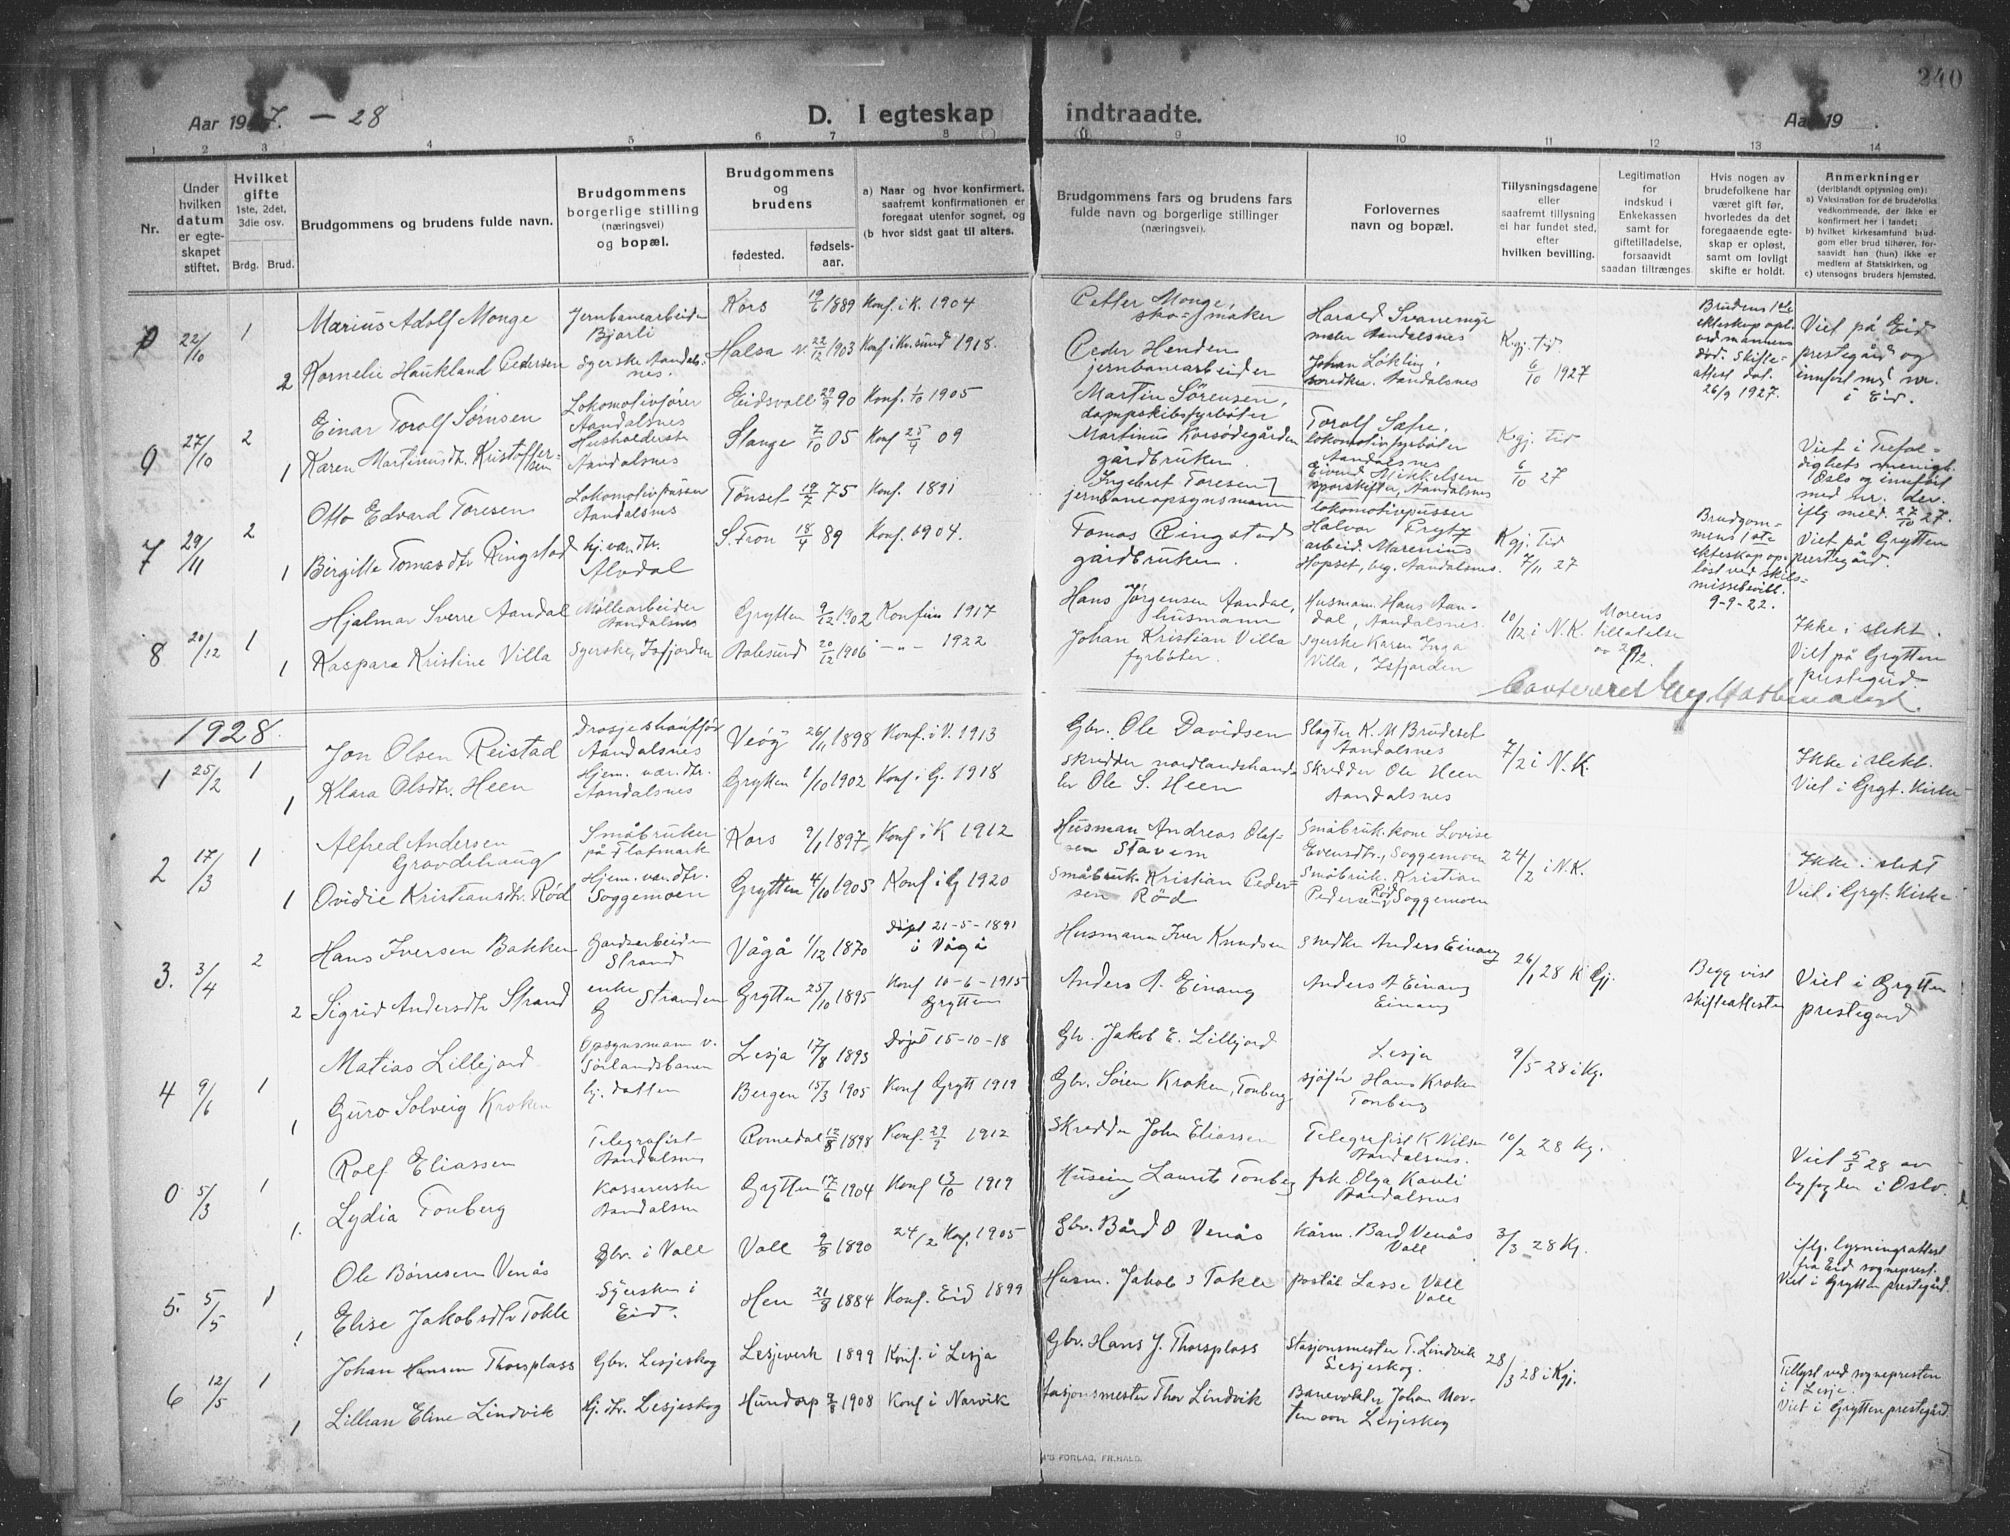 240
Aar 1927. — 28
D. I egteskap indtraadte.
Aar 19 .
1 2 3 4 5 6 7 8 9 10 11 12 13 14
Nr.
Under hvilken datum er egteskapet stiftet.
Hvilket gifte 1ste, 2det, 3die osv.
Brdg. Brud.
Brudgommens og brudens fulde navn.
Brudgommens borgerlige stilling (næringsvei) og bopæl.
Brudgommens og brudens
fødested. fødsels-aar.
a) Naar og hvor konfirmert, saafremt konfirmationen er foregaat utenfor sognet, og
(b hvor sidst gaat til alters.
Brudgommens fars og brudens fars fulde navn og borgerlige stillinger (næringsvei).
Forlovernes navn og bopæl.
Tillysningsdagene eller saafremt tillysning ei har fundet sted, efter hvilken bevilling.
Legitimation for indskud i Enkekassen samt for giftetilladelse, forsaavidt saadan tiltrænges.
Hvis nogen av brudefolkene har været gift før, hvorledes da det foregaaende egteskap er opløst, samt om lovligt skifte er holdt.
Anmerkninger (deriblandt oplysning om):
a) Vaksination for de brudefolks vedkommende, der ikke er konfirmert her i landet;
b) hvilket kirkesamfund brudgom eller brud tilhører, forsaavidt han (hun) ikke er medlem af Statskirken, og
c) utensogns bruders hjemsted.
0 22/10 1 Marius Adolf Monge Jernbanearbeider Bjorli Kors 19/6 1889 Konf. i K. 1904 Petter Monge, skomaker Harald Svanemyr maler Aandalsnes
2 Kornelie Haukland Pedersen Syerske Aandalsnes. Halsa N. 22/12 1903 Konf i Kr.sund 1918. Peder Henden jernbanearbeider Johan Löklin, snedker. Aandalsnes
Kgj. tid 6/10 1927
Brudens 1ste ekteskap opl. ved mannens död. Skifteattest dat. 26/9 1927.
Viet på Eid prestegård og innført med nr. i Eid.
0 27/10 2 Einar Torolf Sørnsen Lokomotivfører Aandalsnes Eidsvoll 29/9 90 Konf. 1/10 1905 Martin Sörensen, dampskibsfyrbøter Torolf Sæfre, lokomotivfyrbøter Aandalsnes
1 Karen Martinusdtr. Kristoffersen Husholderske Aandalsnes Stange 7/10 05 Konf 25/4 09 Martinus Korsödegården gårdbruker. Eivind Mikkelsen sporskifter, Aandalsnes
Kgj tid 6/10 27
Viet i Trefoldighets menigh. Oslo og innført med nr. der. iflg meld. 27/10 27.
7 29/11 2 Otto Edvard Toresen Lokomotivpusser Aandalsnes Tönset 19/7 75 Konf. 1891 Ingebret Toresen jernbaneopsynsmann lokomotivpusser Halvor Prytz
1 Birgitte Tomasdtr Ringstad hj. vær. dtr. Alvdal S. Fron 18/4 89 Konf 1904. Tomas Ringstad gårdbruker. arbeid. Marenius Hopset, beg. Aandalsnes.
Kgj tid 7/11 27
Brudgommens 1ste ekteskap opløst ved skilsmissebevill. 9-9-22.
Viet på Grytten prestegård.
8 20/12 1 Hjalmar Sverre Aandal Møllearbeider Aandalsnes Grytten 9/12 1902 Konfim 1917 Hans Jørgensen Aandal, husmann Husmann Hans Aandal, Aandalsnes.
1 Kaspara Kristine Villa Syerske, Isfjorden Aalesund 20/12 1906 —"— 1922 Johan Kristian Villa fyrbøter. Syerske Karen Inga Villa, Isfjorden
10/12 i N.K.
Morens tillatelse av 2/12.
Ikke i slekt. Viet på Grytten prestegård.
1928.
1 25/2 1 Jon Olsen Reistad Drosjeshauffør Aandalsnes Veöy 26/11 1898 Konf. i V. 1913 Gbr. Ole Davidsen Slagter K. M Brudeset Aandalsnes
1 Klara Olsdtr. Heen Hjem. vær. dtr. Aandalsnes Grytten 1/10 1902 Konf i G. 1918 skredder nordlandshandler Ole S. Heen Skredder Ole Heen Aandalsnes
7/2 i N.K.
Ikke i slekt. Viet i Gryt. Kirke
2 17/3 1 Alfred Andersen Gravdehaug Småbruker på Flatmark Kors 9/1 1897 Konf i K 1912 Husman Andreas Olafsen Stavem Småbruk. kone Lovise Evensdtr., Soggemoen
1 Ovidie Kristiansdtr. Rød Hjem. vær. dtr. Soggemoen Grytten 4/10 1905 Konf i G 1920 Småbruk. Kristian Pedersen Rød Småbruk. Kristian Pedersen Rød Soggemoen
24/2 i N.K.
Ikke i slekt Viet i Gryt. Kirke
3. 3/4 2 Hans Iversen Bakken Gardsarbeider Strand Vågå 1/12 1870 Døpt 21-5-1891 i Vågå Husmann Iver Knudsen snedker Anders Einang
2 Sigrid Andersdtr Strand enke G Stranden Grytten 25/10 1895 Konf 10-6-1915 Grytten Anders A. Einang Anders A Einang Einang
26/1 28 K Gj.
Begg vist skifteattester
Viet i Grytten prestegard
4 9/6 1 Matias Lillejord Opsynsmann v. Sørlandsbanen Lesja 17/8 1893 Døpt 15-10-18 Gbr. Jakob E. Lillejord Lesja
1 Guro Solveig Kroken hj. datter Bergen 15/3 1905 Konf Grytt 1919 Gbr. Sören Kroken, Tonberg sjåfør Hans Kroken Tonberg
9/5 28 i Kg.
0 5/3 1 Rolf Eliassen Telegrafist Aandalsnes Romedal 12/8 1898 Konf. 29/9 1912 Skredder John Eliassen Telegrafist K Nilsen Aandalsnes.
1. Lydia Tonberg Kassererske Aandalsnes Grytten 17/6 1904 Konf 13/10 1919 Laurits Tonberg frk. Olga Kavli Aandalsnes
10/2 28 Kg.
Viet 5/3 28 av byfogden i Oslo.
5. 5/5 1 Ole Børresen Venås Gbr. i Voll Voll 9/8 1890 24/2 Konf. 1905 Gbr. Bård O Venås Kårm. Bard Venås Voll
1 Elise Jakobsdtr Tokle Syerske i Eid. Hen 21/8 1884 Konf. Eid 1899 Husm. Jakob s Tokle poståb Lasse Voll Voll
3/3 28 Kj.
iflg. lysningsattest fra Eid sogneprest. Viet i Grytten prestegård.
6 12/5 1 Johan Hansen Thorsplass Gbr. Lesjeskog Lesjeverk 1899 Konf. i Lesja Gbr. Hans J. Thorsplass Stasjonsmester T. Lindvik Lesjeskog.
1 Lillian Eline Lindvik hj. dtr. Lesjeskog Hundorp 9/8 1908 Konf i Narvik stasjonsmester Thor Lindvik Banevokter Johan Mor- Lesjeskog
28/3 28 i Kgj.
Tillyst ved sognepresten i Lesje. Viet i Grytten prestegård.
FORLAG, FR.HALD.